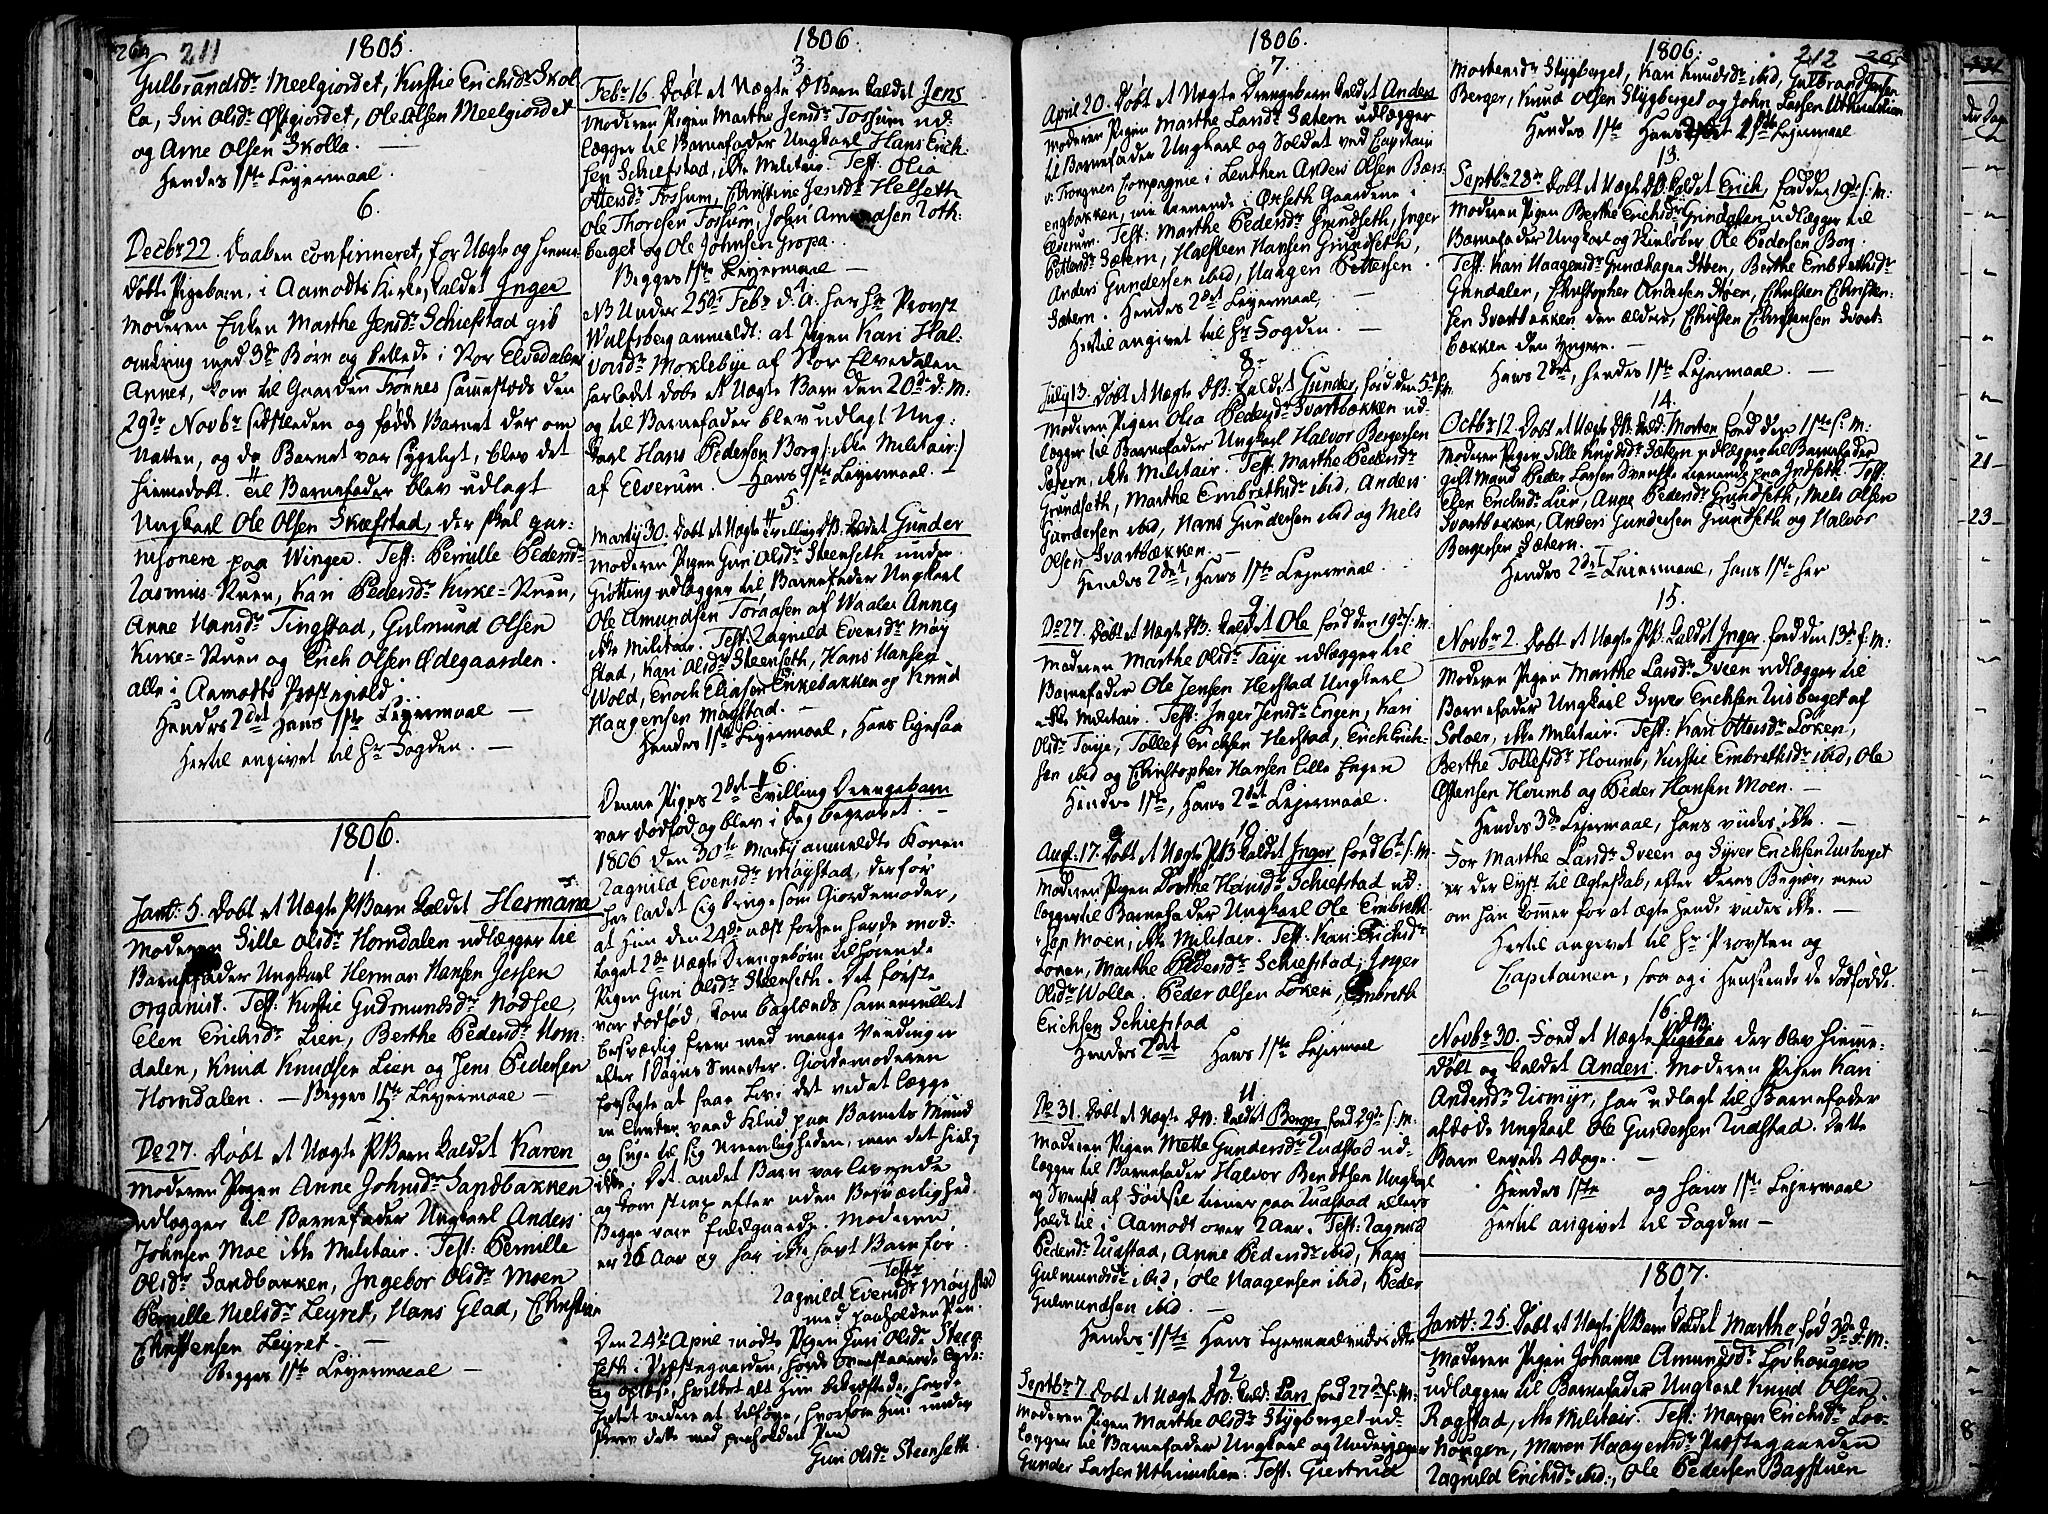 263 211
1805.
Gulbrandsdr Meelgiordet, Kirstie Erichsdr Skol
la, Siri Olsdr Østgiordet, Ole Olsen Meelgiordet
og Arne Olsen Skolla. —
Hendes 1ste Leyermaal.
6.
Decbr 22. Daaben confirmeret, for Uægte og hiemme
døbte Pigebarn, i Aamodts Kirke, kaldet Inger
Moderen Enken Marthe Jensdr Schiefstad gik
omkring med 3de Børn og betlede i Stor Elvedalens
Annex, kom til Gaarden Trønnes sammesteds den
29de Novbr sidstleden og fødde Barnet der om
Natten, og da Barnet var sygeligt, blev det
hiemedøbt. Til Barnefader blev udlagt
Ungkarl Ole Olsen Skæfstad, der skal gar-
nisonere paa Winger. Test: Pernille Pedersdr
Rasmus Stuen, Kari Pedersdr Kirke-Stuen,
Anne Hansdr Tingstad, Gulmund Olsen
Kirke-Stuen og Erich Olsen Ødegaarden.
alle i Aamodts Præstegield.
Hendes 2det Hans 1ste Leyermaal —
Hertil angivet til Hr Fogden. —
1806.
1.
Janr: 5. Døbt et Uægte P Barn kaldet Hermana
Moderen Sille Olsdr Horndalen udlægger til
Barnefader Ungkarl Herman Hansen Jessen
Organist. Test: Kirstie Gudmundsdr Nødset,
Elen Erichsdr Lien, Berthe Pedersdr Horn-
dalen, Knud Knudsen Lien og Jens Pedersen
Horndalen. — Begges 1ste Leyermaal —
2.
Do 27. Døbt et Uægte P Barn kaldet Karen
Moderen Pigen Anne Johnsdr Sandbakken
udlægger til Barnefader Ungkarl Anders
Johnsen Moe ikke Militair. Test: Pernille
Olsdr Sandbakken, Ingebor Olsdr Moen
Pernille Nielsdr Leyret, Hans Glad, Christian
Christensen Leyret. —
Begges 1ste Leyermaal —
1806
3.
Febr 16. Døbt et Uægte D Barn kaldet Jens
Moderen Pigen Marthe Jensdr Tossum ud-
lægger til Barnefader Ungkarl Hans Erich-
sen Schiefstad, ikke Militair. Test: Olia
Ottersdr Fossum, Christine Jensdr Helseth
Ole Thoresen Fossum, John Amundsen Roth-
berget og Ole Johnsen Gropa.
Begges 1ste Leyermaal —
4
NB Under 25de Febr d. A. har Hr Provst
Wulfsberg anmeldt: at Pigen Kari Hal-
vorsdr Moklebye af Stor Elvedalen
har ladet døbe et Uægte Barn den 20de d: M:
og til Barnefader blev udlagt Ung-
karl Hans Pedersen Borg /: ikke Militair:/
af Elverum. Hans 1ste Leyermaal. —
5
Martij 30. Døbt et Uægte Tvilling DB: kaldet Gunder
Moderen Pigen Guri Olsdr Steenseth under
Giøtting udlægger til Barnefader Ungkarl
Ole Amundsen Toraasen af Waaler Annex
ikke Militair. Test: Ragnild Evensdr Møy
stad, Kari Olsdr Steenseth, Hans Hansen
Wold, Enoch Eliasen Enkebakken og Knud
Haagensen Møystad. —
Hendes 1ste Leyermaal, Hans ligesaa
6.
Denne Piges 2det Tvilling Drengebarn
var dødfød og blev i dag begravet —
1806 den 30te Martij anmeldte Konen
Ragnild Evensdr Møystad, der før
har ladet sig bruge som Giordemoder,
at hun den 24de næst forhen havde mod-
taget 2de Uægte Drengebørn tilhørende
Pigen Guri Olsdr Steenseth. Det første
var dødfød, kom baglænds sammenrullet
besværlig frem med mange Vendinger
efter 1 Døgns Smerter. Giordemoderen
forsøgte at faae Liv i det ved at lægge
en linnen vaad Klud paa Barnets Mund
og suge til sig Ureenligheden, men det hialp
ikke. Det andet Barn var levende
og kom strax efter uden Besværlighed
Begge vare fuldgaaede. Moderen
er 26 Aar og har ikke havt Barn før.
Test:
Ragnild Evensdr Møystad
med paaholden Pen.
Den 24de April mødte Pigen Guri Olsdr Steen-
seth i Præstegaarden, hørte ovenstaaende tyde-
lig oplæse, hvilket alt hun bekræftede, havde
intet videre at tilføye, hvorfore hun under
skrev dette med paaholden Pen
Guri Olsdr Steenseth.
1806.
7.
April 20. Døbt et Uægte Drengebarn kaldet Anders
Moderen Pigen Marthe Larsdr Sætern udlægger
til Barnefader Ungkarl og Soldat ved Capitain
v: Krogners Compagnie i Leuthen Anders Olsen Bærs-
engbakken, nu tienende i Øxseth Gaardene i
Elverum. Test: Marthe Pedersdr Grundseth, Inger
Pettersdr Sætern, Halsteen Hansen Grundseth,
Anders Gundersen ibid, Haagen Pettersen
Sætern. Hendes 2det Leyermaal, —
Hertil angivet til Hr Fogden. —
8.
July 13. Døbt et Uægte DB: kaldet Gunder, fød den 5te s: M:
Moderen Pigen Olia Pedersdr Svartbækken ud-
lægger til Barnefader Ungkarl Halvor Bergersen
Sætern, ikke Militair. Test: Marthe Pedersdr
Grundseth, Marthe Embretsdr ibid, Anders
Gundersen ibid, Hans Gundersen ibid og Niels
Olsen Svartbækken. —
Hendes 2det, Hans 1ste Leyermaal. —
9.
Do 27. Døbt et Uægte DB: kaldet Ole fød den 19de s: M:
Moderen Marthe Olsdr Taye udlægger til
Barnefader Ole Jensen Herstad Ungkarl
ikke Militair. Test: Inger Jensdr Engen, Kari
Olsdr Taye, Tollef Erichsen Herstad, Erich Erich-
sen ibid og Christopher Hansen Lille Engen
Hendes 1ste, Hans 2det Leyermaal. —
10
Aug: 17. Døbt et Uægte PB kaldet Inger fød 6te s: M.
Moderen Pigen Dorthe Hansdr Schiefstad ud-
lægger til Barnefader Ungkarl Ole Embreth-
sen Moen, ikke Militair. Test: Kari Erichsdr
Løken, Marthe Pedersdr Schiefstad, Inger
Olsdr Wolla, Peder Olsen Løken, Embreth
Erichsen Schiefstad
Hendes 2det Hans 1ste Leyermaal
11.
Do 31. Døbt et Uægte DB: kaldet Berger fød 29de s: M.
Moderen Pigen Mette Gundersdr Rudstad ud-
lægger til Barnefader Halvor Berthsen Ungkarl
og Svensk af Fødsel tiener paa Rudstad ellers
holdt til i Aamodt over 2 Aar. Test: Ragnild
Pedersdr Rudstad, Anne Pedersdr ibid, Kari
Gulmundsdr ibid, Ole Haagensen ibid, Peder
Gulmundsen ibid. —
Hendes 1ste Hans Leyermaal vides ikke
12
Septbr 7. Døbt et Uægte DB: kald: Lars fød 27de f: M:
Moderen Pigen Marthe Olsdr Stygberget ud-
lægger til Barnefader Ungkarl og Underjæger
Gunder Larsen Uthuuslien. Test: Giertrud
1806. 212 265
Mortensdr Stygberget, Kari Knudsdr ibid, Gulbrand Jensen
Berger, Knud Olsen Stygberget og John Larsen Uthuuslien
Hendes 1ste Hans 1ste Leyermaal
13.
Septbr 28de Døbt et Uægte DB: kaldet Erich, fød den 19de s: M:
Moderen Pigen Berthe Erichsdr Grindalen udlægger til
Barnefader Ungkarl og Skieløber Ole Pedersen Borg.
Test: Kari Haagensdr Gundhagen Støen, Berthe Embrethsdr
Grindalen, Christopher Andersen Støen, Christen Christen-
sen Svartbækken den ældre, Christen Christensen Svart-
bækken den yngere. —
Hans 2det, Hendes 1ste Leyermaal. —
14.
Octbr 12. Døbt et Uægte DB kald: Morten fød den 1ste s: M:
Moderen Pigen Sille Knudsdr Sætern udlægger til Barnefader
gift Mand Peder Larsen Svenske tienende paa Indseth. Test:
Elen Erichsdr Lier, Anne Pedersdr Grundseth, Niels Olsen
Svartbækken, Anders Gundersen Grundseth og Halvor
Bergersen Sætern.
Hendes 2det Leyermaal, Hans 1ste her
15.
Novbr 2. Døbt et Uægte PB: kaldet Inger fød den 13de f: M:
Moderen Pigen Marthe Larsdr Sveen udlægger til
Barnefader Ungkarl Syver Erichsen Lusberget af
Soloer, ikke Militair. Test: Kari Ottersdr Løken,
Berthe Tollefsdr Houmb, Kirstie Embrethsdr ibid, Ole
Østensen Houmb og Peder Hansen Moen. —
Hendes 3de Leyermaal, Hans vides ikke. —
For Marthe Larsdr Sveen og Syver Erichsen Lusberget
er der lyst til Ægteskab, efter deres Begiær, men
om han kommer for at ægte hende vides ikke. —
Hertil angivet til Hr Provsten og
Capitainen, saa og i Henseende de dødfødde.
16.
DB:
Novbr 30. Fød et Uægte Pigebar der blev hiemme-
døbt og kaldet Anders. Moderen Pigen Kari
Andersdr Rismyr, har udlagt til Barnefader
afdøde Ungkarl Ole Gundersen Rudstad. Dette
Barn levede 4 Dage. —
Hendes 1ste og Hans 1ste Leyermaal
Hertil angivet til Fogden —
1807.
1
Janr: 25. Døbt et Uægte P Barn kaldet Marthe fød 3de d: M:
Moderen Pigen Johanne Amundsdr Lovhougen
udlægger til Barnefader Ungkarl Knud Olsen
Rogstad, ikke Militair. Test: Maren Erichsdr Lov-
hougen, Maren Haagensdr Præstegaarden
Ragnild Erichsdr ibid:, Ole Pedersen Bagstuen
21
23
8